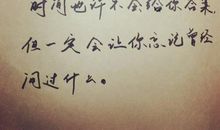 时间也许不会给你答案，
但一定会让你忘记曾经
问过什么。